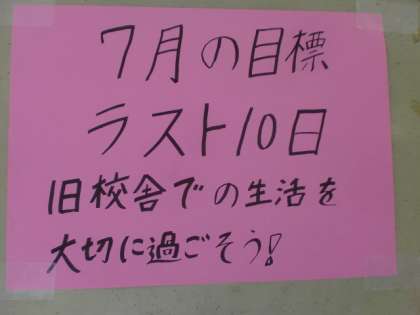 7月の目標
ラスト10日
旧校舎での生活を
大切に過ごそう!